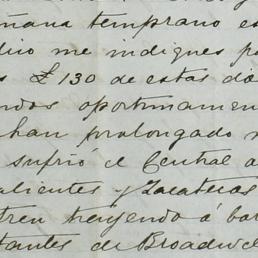 ñana temprano es
dico me indiques pa
s £130 de estas do
ndos oportunamen
han prolongado
sufrió el Central a
alientes y Zacatecas
tren trayendo á bor
tantes de Broadwe